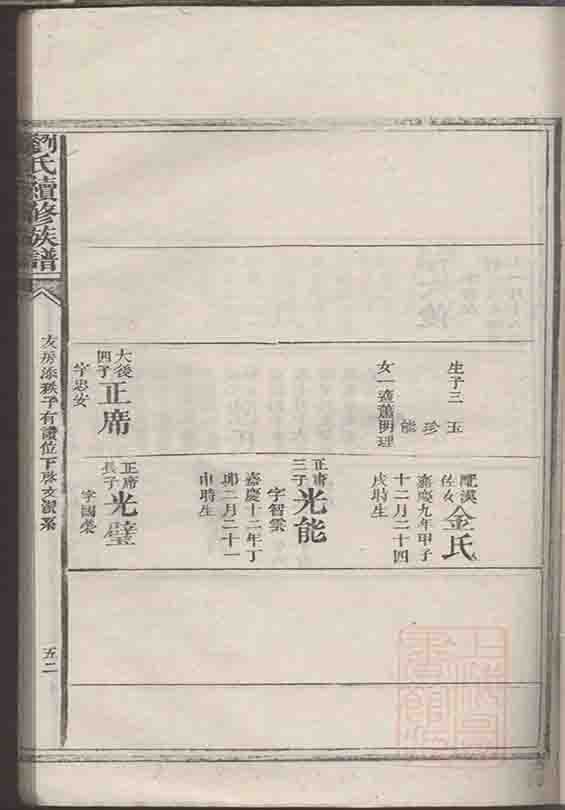 生子三 玉
珍
能
女一適蕭明理
大後四子 正席
字忠安
配漢佐女 金氏
嘉慶九年甲子
十二月二十四
戌時生
正庸三子 光能
字智雲
嘉慶十二年丁
卯二月二十一
申時生
正席長子 光璧
字國榮
劉氏續修族譜
五二